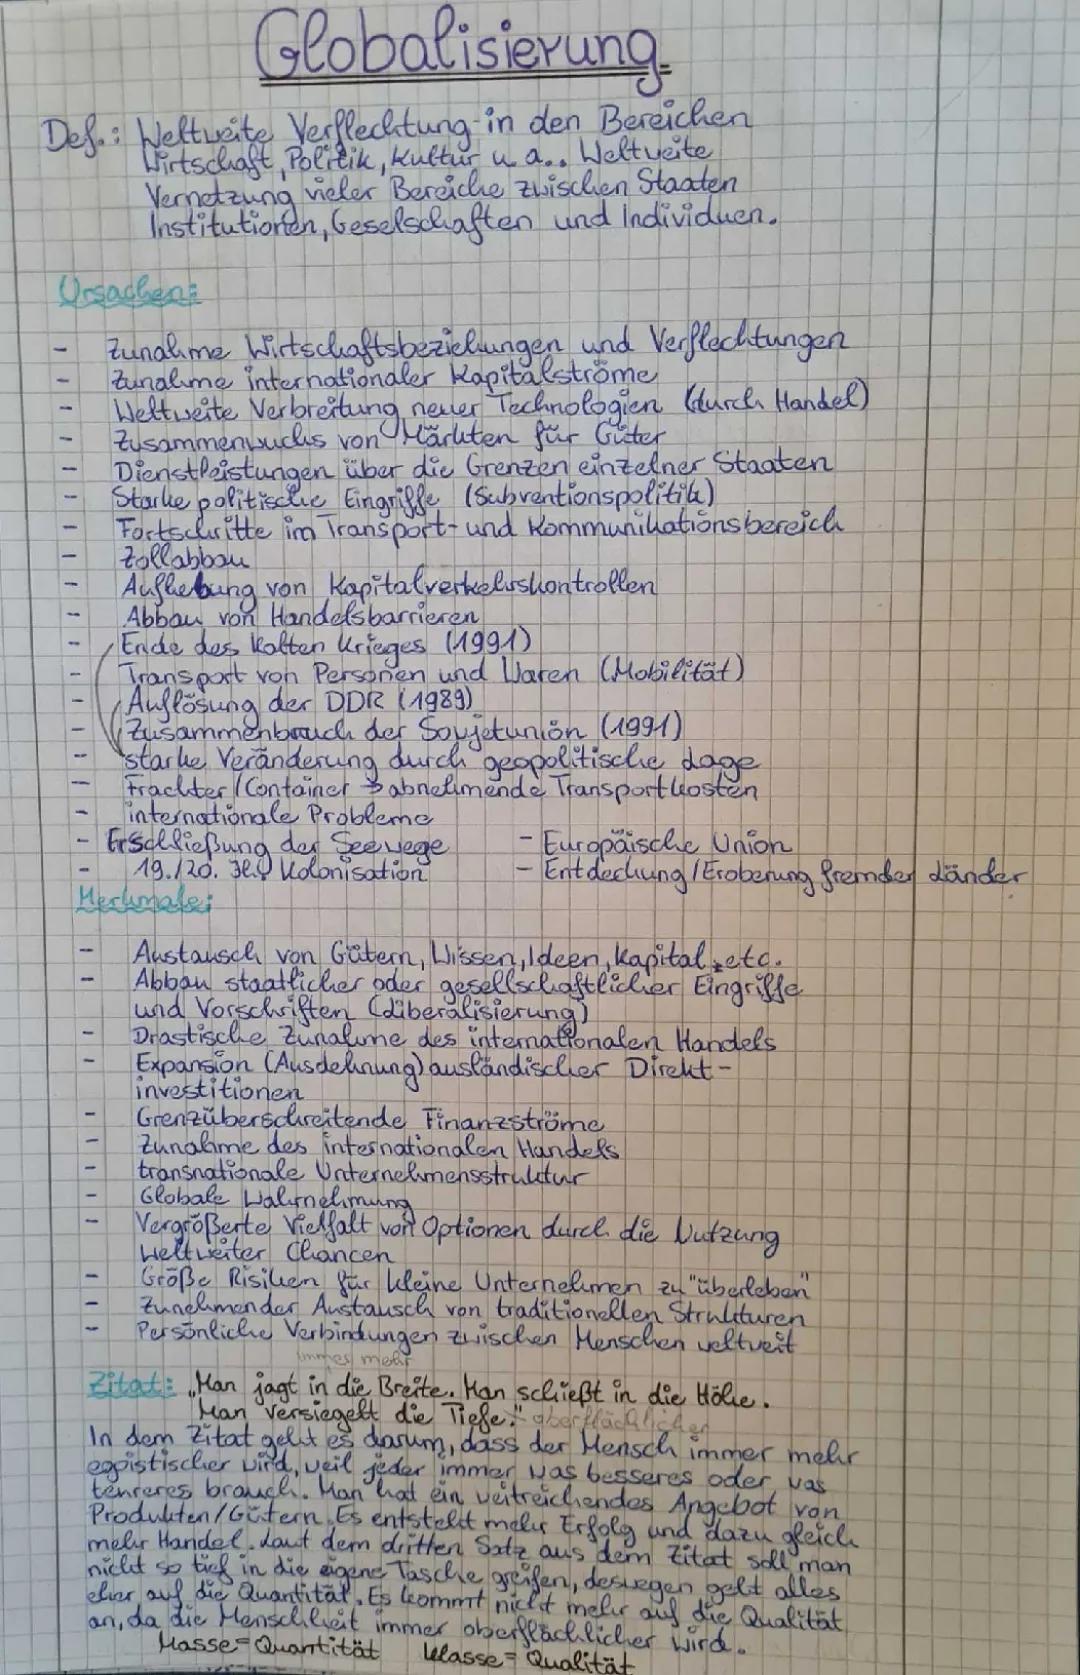 Globalisierung
Def.: Weltweite Verflechtung in den Bereichen
Wirtschaft, Politik, Kultur u. a.. Weltweite
Vernetzung vieler Bereiche zwischen Staaten
Institutionen, Geselschaften und Individuen.
Ursachen:
- Zunahme Wirtschaftsbeziehungen und Verflechtungen
- Zunahme internationaler Kapitalströme
- Weltweite Verbreitung neuer Technologien (durch Handel)
- Zusammenwuchs von Märkten für Güter
- Dienstleistungen über die Grenzen einzelner Staaten
- Starke politische Eingriffe (Subventionspolitik)
- Fortschritte im Transport- und Kommunikationsbereich
- Zollabbau
- Aufhebung von Kapitalverkehrskontrollen
- Abbau von Handelsbarrieren
- Ende des kalten Krieges (1991)
- Transport von Personen und Waren (Mobilität)
- Auflösung der DDR (1989)
- Zusammenbruch der Sowjetunion (1991)
- starke Veränderung durch geopolitische Lage
- Frachter/Container → abnehmende Transportkosten
- internationale Probleme
- Erschließung der Seewege - Europäische Union
- 19./20. Jh. Kolonisation - Entdeckung/Eroberung fremder Länder
Merkmale:
- Austausch von Gütern, Wissen, Ideen, Kapital, etc.
- Abbau staatlicher oder gesellschaftlicher Eingriffe
und Vorschriften (Liberalisierung)
- Drastische Zunahme des internationalen Handels
- Expansion (Ausdehnung) ausländischer Direkt-
investitionen
- Grenzüberschreitende Finanzströme
- Zunahme des internationalen Handels
- transnationale Unternehmensstruktur
- Globale Wahrnehmung
- Vergrößerte Vielfalt von Optionen durch die Nutzung
weltweiter Chancen
- Größe Risiken für kleine Unternehmen zu "überleben"
- Zunehmender Austausch von traditionellen Strukturen
- Persönliche Verbindungen zwischen Menschen weltweit
immer mehr
Zitat: „Man jagt in die Breite. Man schießt in die Höhe.
Man versiegelt die Tiefe." oberflächlicher
In dem Zitat geht es darum, dass der Mensch immer mehr
egoistischer wird, weil jeder immer was besseres oder was
teureres brauch. Man hat ein weitreichendes Angebot von
Produkten/Gütern. Es entsteht mehr Erfolg und dazu gleich
mehr Handel. Laut dem dritten Satz aus dem Zitat soll man
nicht so tief in die eigene Tasche greifen, deswegen geht alles
eher auf die Quantität. Es kommt nicht mehr auf die Qualität
an, da die Menschheit immer oberflächlicher wird.
Masse = Quantität Klasse = Qualität